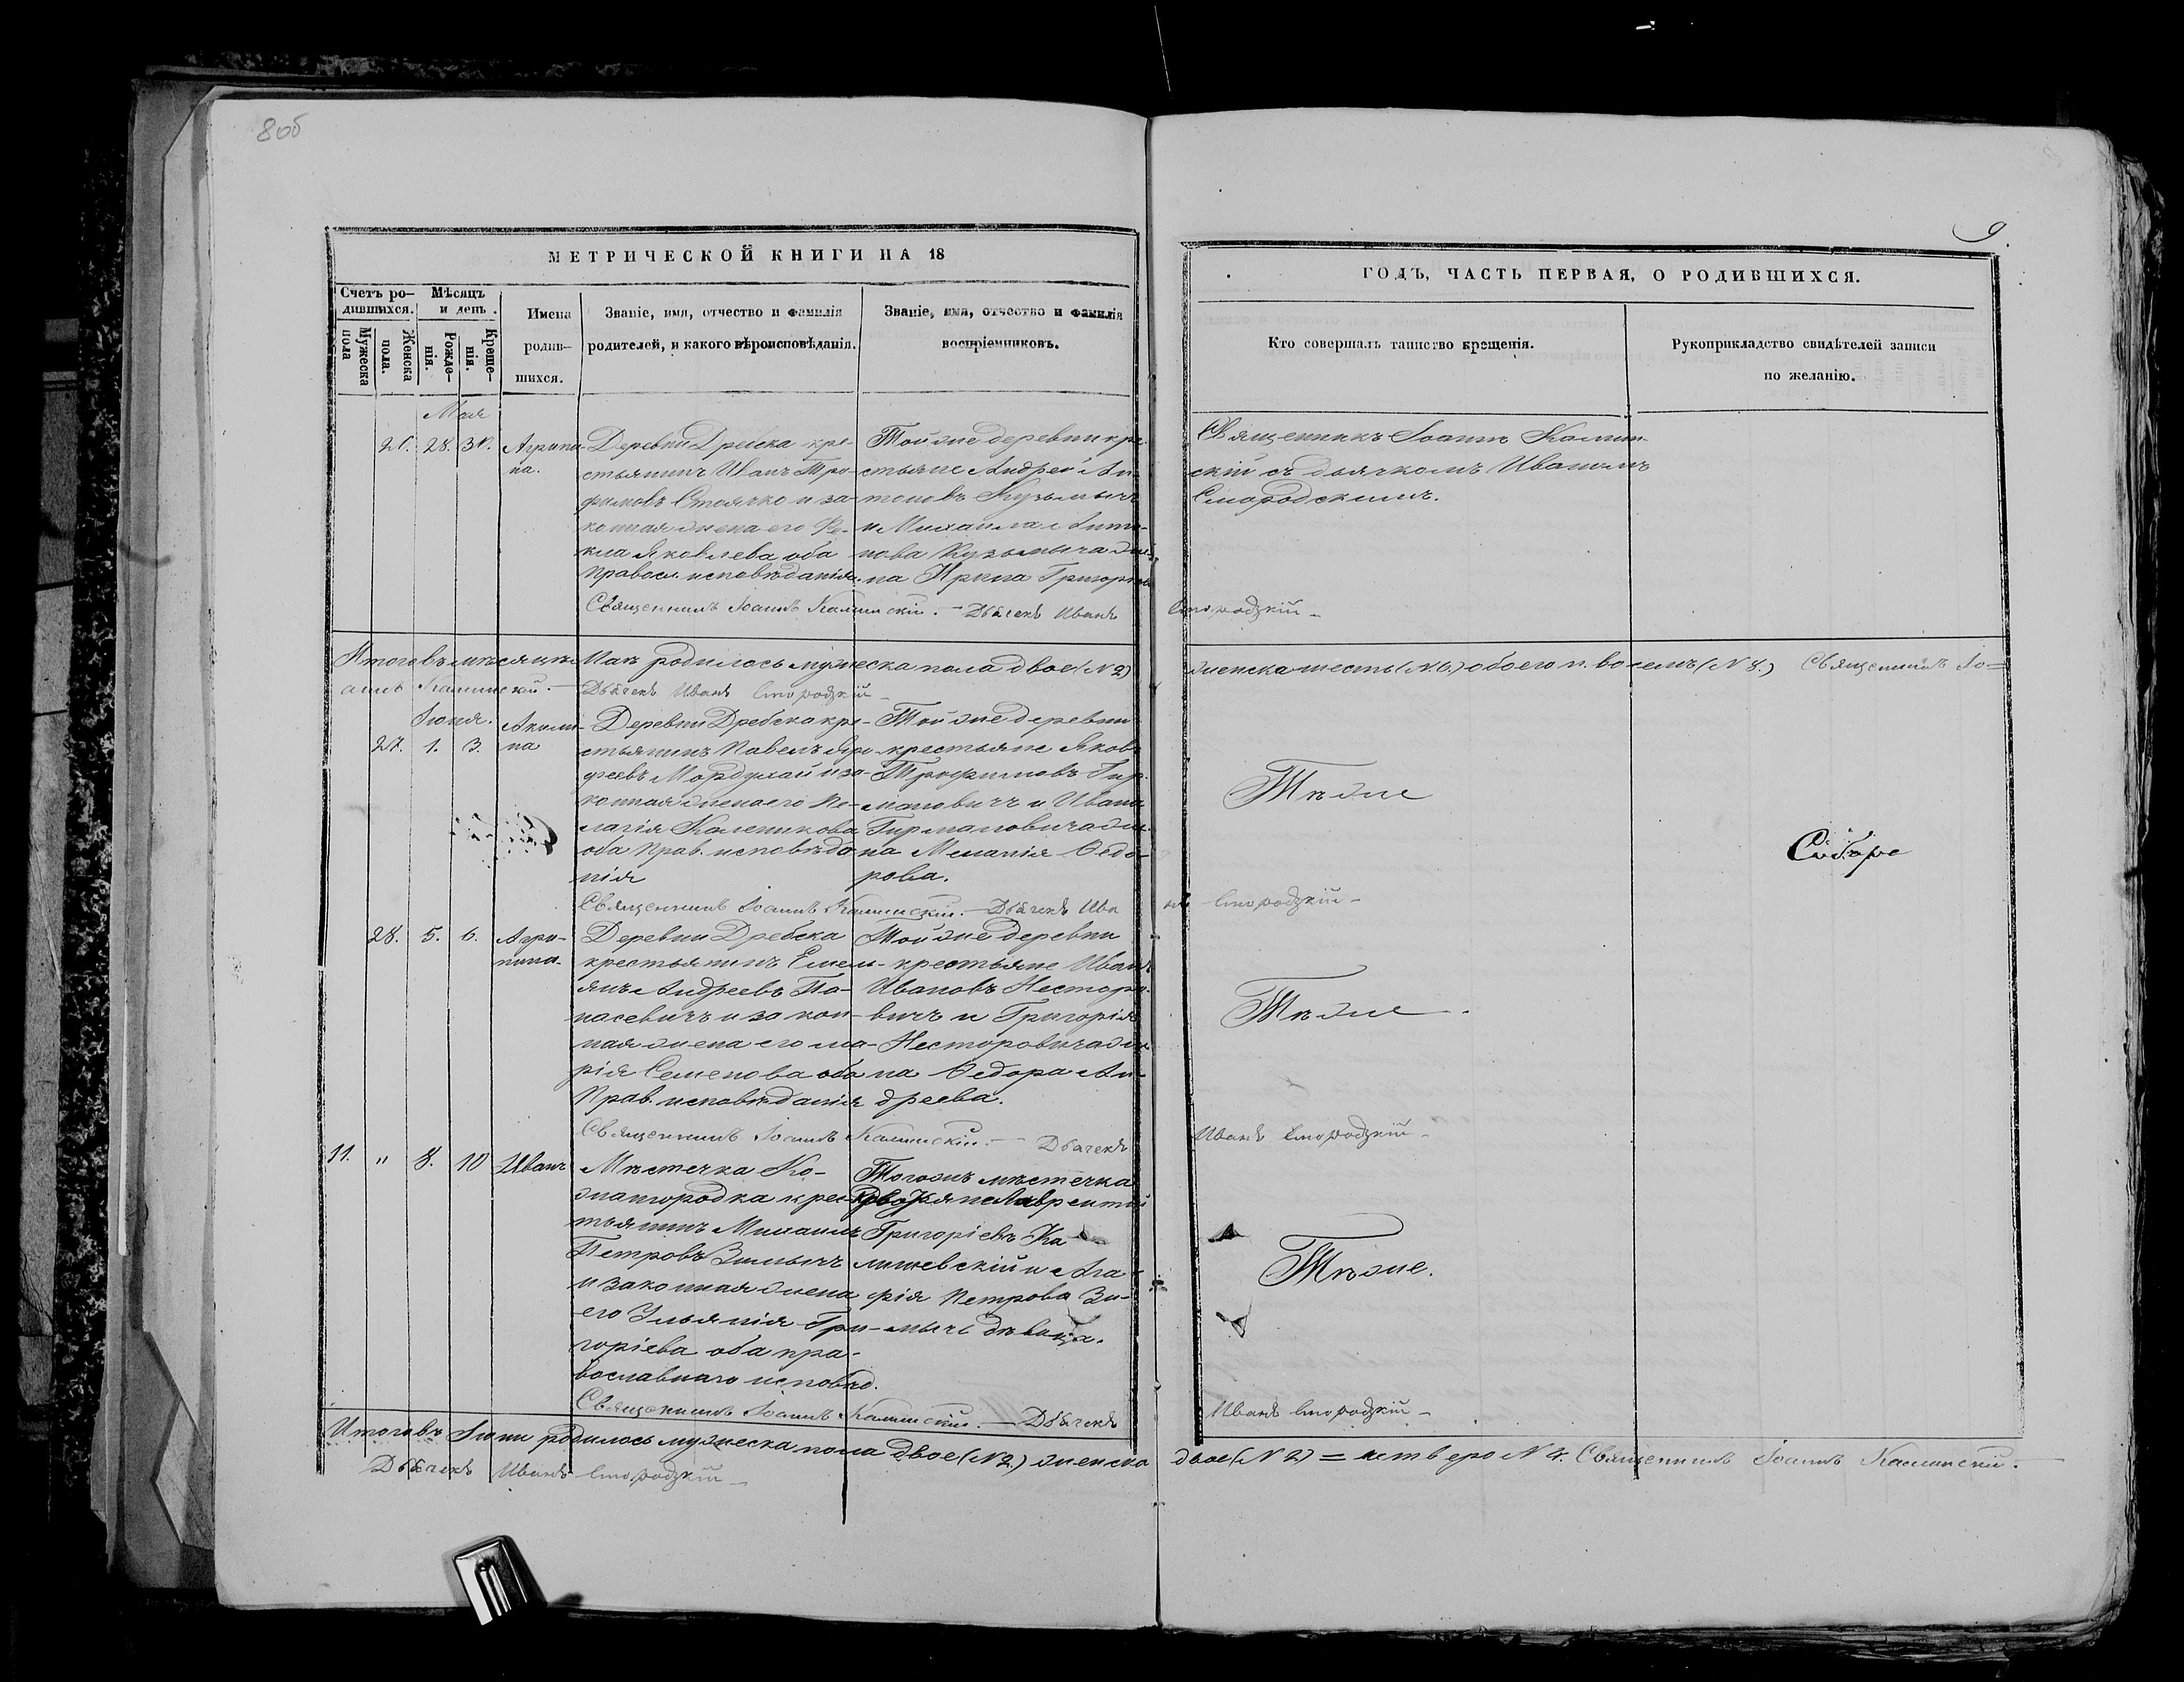 8об
9.
МЕТРИЧЕСКОЙ КНИГИ НА 18
ГОДЪ, ЧАСТЬ ПЕРВАЯ, О РОДИВШИХСЯ.
Счетъ ро-
дившихся.
Мужеска
пола
Женска
пола.
Мѣсяцъ
и день.
Рожде-
нія.
Креще-
нія.
Имена
родив-
шихся.
Званіе, имя, отчество и фамилія
родителей, и какого вѣроисповѣданія.
Званіе, имя, отчество и фамилія
воспріемниковъ.
Кто совершалъ таинство крещенія.
Рукоприкладство свидѣтелей записи
по желанію.
Мая
28.
Агрипи
на.
Деревни Дребска кре-
стьянинъ Иванъ Тро-
фимовъ Стоячко и за-
конная жена его Ѳе-
кла Яковлева оба
правосл. исповѣданія.
Той же деревни кр.
стьяне Андрей Ан-
тоновъ Кузьмичъ
и Михаила Анто-
нова Кузьмича же-
на Ирина Григорьева
Священникъ Іоаннъ Калин-
скій съ дьячкомъ Иваномъ
Смородскимъ.
Священникъ Іоаннъ Калинскій. – Дьячекъ Иванъ Смородзкій –
Итого въ мѣсяцѣ Маѣ родилось мужеска пола двое (N 2) женска шесть (N. 6.) обоего п. восемь (N 8.) Священникъ Іо=
аннъ Калинскій. – Дьячекъ Иванъ Смородзкій –
Іюня.
27. 1. 3.
Акили-
на
Деревни Дребска кре-
стьянинъ Павелъ
Мордухай и за-
конная жена его Пе-
лагія Каленикова
оба прав. исповѣда
нія
Той же деревни
крестьяне Яковъ
Трофимовъ Гир-
мановичъ и Ивана
Гирмановича же-
на Меланія Ѳедо-
рова.
Тѣже
Священникъ Іоаннъ Калинскій. – Дьячекъ Ива нъ Смородзкій –
28. 5. 6.
Агри-
пина
Деревни Дребска
крестьянинъ Емель-
янъ Андреевъ Па-
насевичъ и закон-
ная жена его Ма-
рія Семенова оба
Прав. исповѣданія
Той же деревни
крестьяне Иванъ
Ивановъ Несторо-
вичъ и Григорія
Несторовича же
на Ѳедора Ан-
дреева.
Тѣже
Священникъ Іоаннъ Калинскій. – Дьячекъ Иванъ Смородзкій –
11. " 8. 10
Иванъ
Мѣстечка Ко-
жангородка крес-
тьянинъ Михаилъ
Петровъ Зимычъ
и законная жена
его Ульянія Гри-
горіева оба пра-
вославнаго исповѣд.
Тогожъ мѣстечка
Лаврентій
Григоріевъ Ка
лишевскій и Ага-
фія Петрова Зи-
мычъ дѣвица.
Тѣже.
Священникъ Іоаннъ Калинскій. – Дьячекъ Иванъ Смородзкій –
Итого въ Іюни родилось мужеска пола двое (N 2.) женска двое (N 2) = четверо N 4. Священникъ Іоаннъ Калинскій. –
Дьячекъ Иванъ Смородзкій –